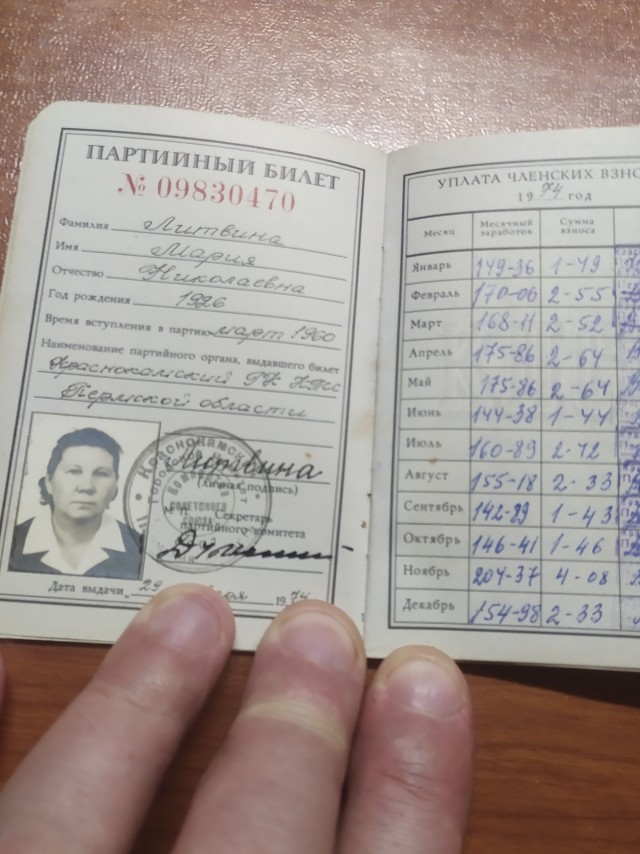 ПАРТИЙНЫЙ БИЛЕТ
№ 09830470
Фамилия Литвина
Имя Мария
Отчество Николаевна
Год рождения 1926
Время вступления в партию март 1960
Наименование партийного органа, выдавшего билет
Краснокамский ГК КПСС
Пермской области
Литвина
(личная подпись)
Секретарь
партийного комитета
Дата выдачи „29 1974
УПЛАТА ЧЛЕНСКИХ ВЗНО
1974 год
Месяц Месячный заработок Сумма взноса
Январь 149-36 1-49
Февраль 170-06 2-55
Март 168-11 2-52
Апрель 175-86 2-64
Май 175-86 2-64
Июнь 144-38 1-44
Июль 160-89 2-42
Август 155-18 2-33
Сентябрь 142-89 1-43
Октябрь 146-41 1-46
Ноябрь 204-37 4-08
Декабрь 154-98 2-33